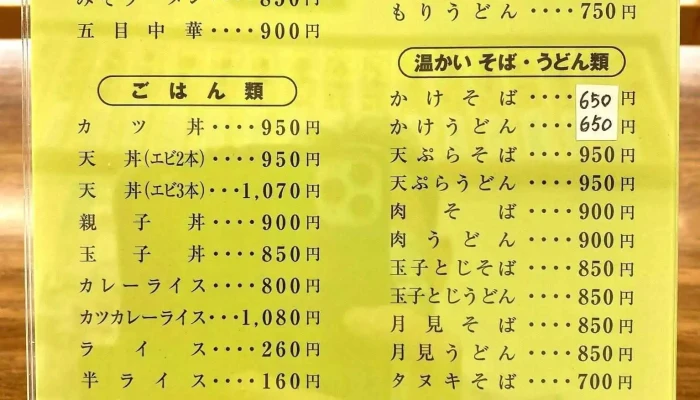 みそラーメン････850円
五目中華････900円
ごはん類
カツ丼････950円
天丼(エビ2本)････950円
天丼(エビ3本)････1,070円
親子丼････900円
玉子丼････850円
カレーライス････800円
カツカレーライス････1,080円
ライス････260円
半ライス････160円
もりうどん････750円
温かい そば・うどん類
かけそば････650円
かけうどん････650円
天ぷらそば････950円
天ぷらうどん････950円
肉そば････900円
肉うどん････900円
玉子とじそば････850円
玉子とじうどん････850円
月見そば････850円
月見うどん････850円
タヌキそば････700円